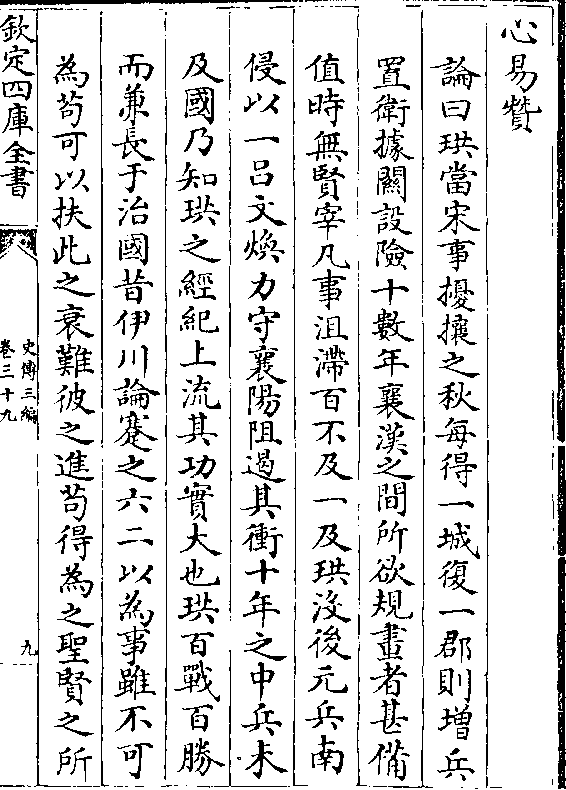 心易贊
論曰珙當宋事擾攘之秋每得一城復一郡則增兵
置衛據關設險十數年襄漢之間所欲規畫者甚備
值時無賢宰凡事沮滯百不及一及珙沒後元兵南
侵以一吕文煥力守襄陽阻遏其衝十年之中兵未
及國乃知珙之經紀上流其功實大也珙百戰百勝
而兼長于治國昔伊川論蹇之六二以為事雖不可
為苟可以扶此之衰難彼之進苟得為之聖賢之所
欽定四庫全書
史傳三編
卷三十九
九